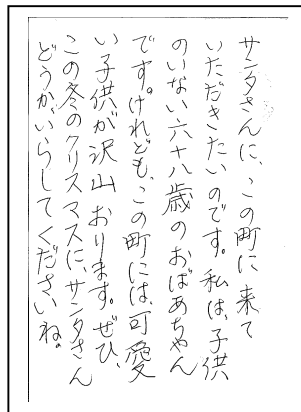 サンタさんに、この町に来て
いただきたいのです。私は、子供
のいない六十八歳のおばあちゃん
です。けれども、この町には、可愛
い子供が沢山おります。ぜひ、
この冬のクリスマスに、サンタさん
どうか、いらしてくださいね。